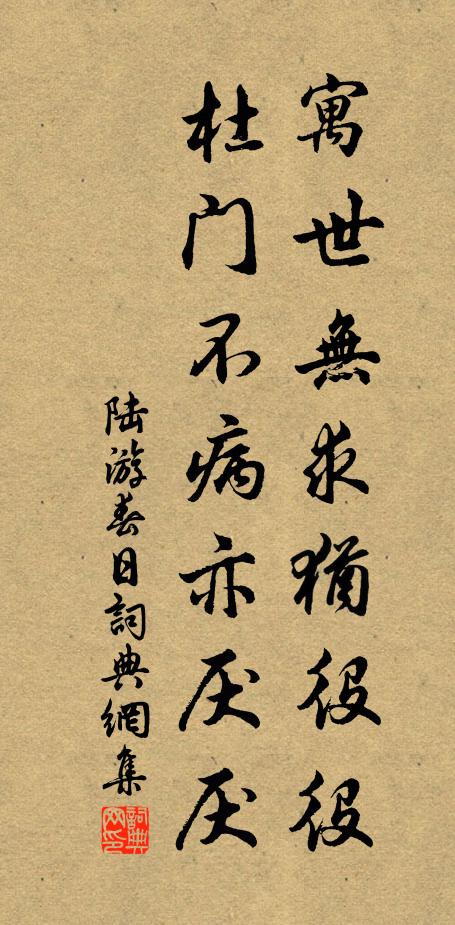 寓世無求猶役役
杜门不病亦厌厌
陆游春日詞典網集
詞典网印